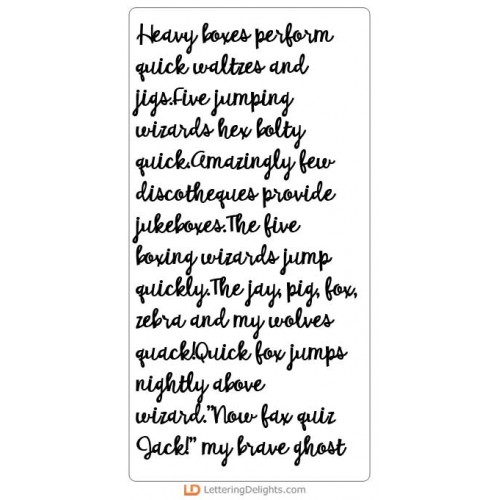 Heavy boxes perform
quick waltzes and
jigs.Five jumping
wizards hex bolty
quick.Amazingly few
discotheques provide
jukeboxes.The five
boxing wizards jump
quickly.The jay, pig, fox,
zebra and my wolves
quack!Quick fox jumps
nightly above
wizard."Now fax quiz
Jack!" my brave ghost
LD LetteringDelights.com